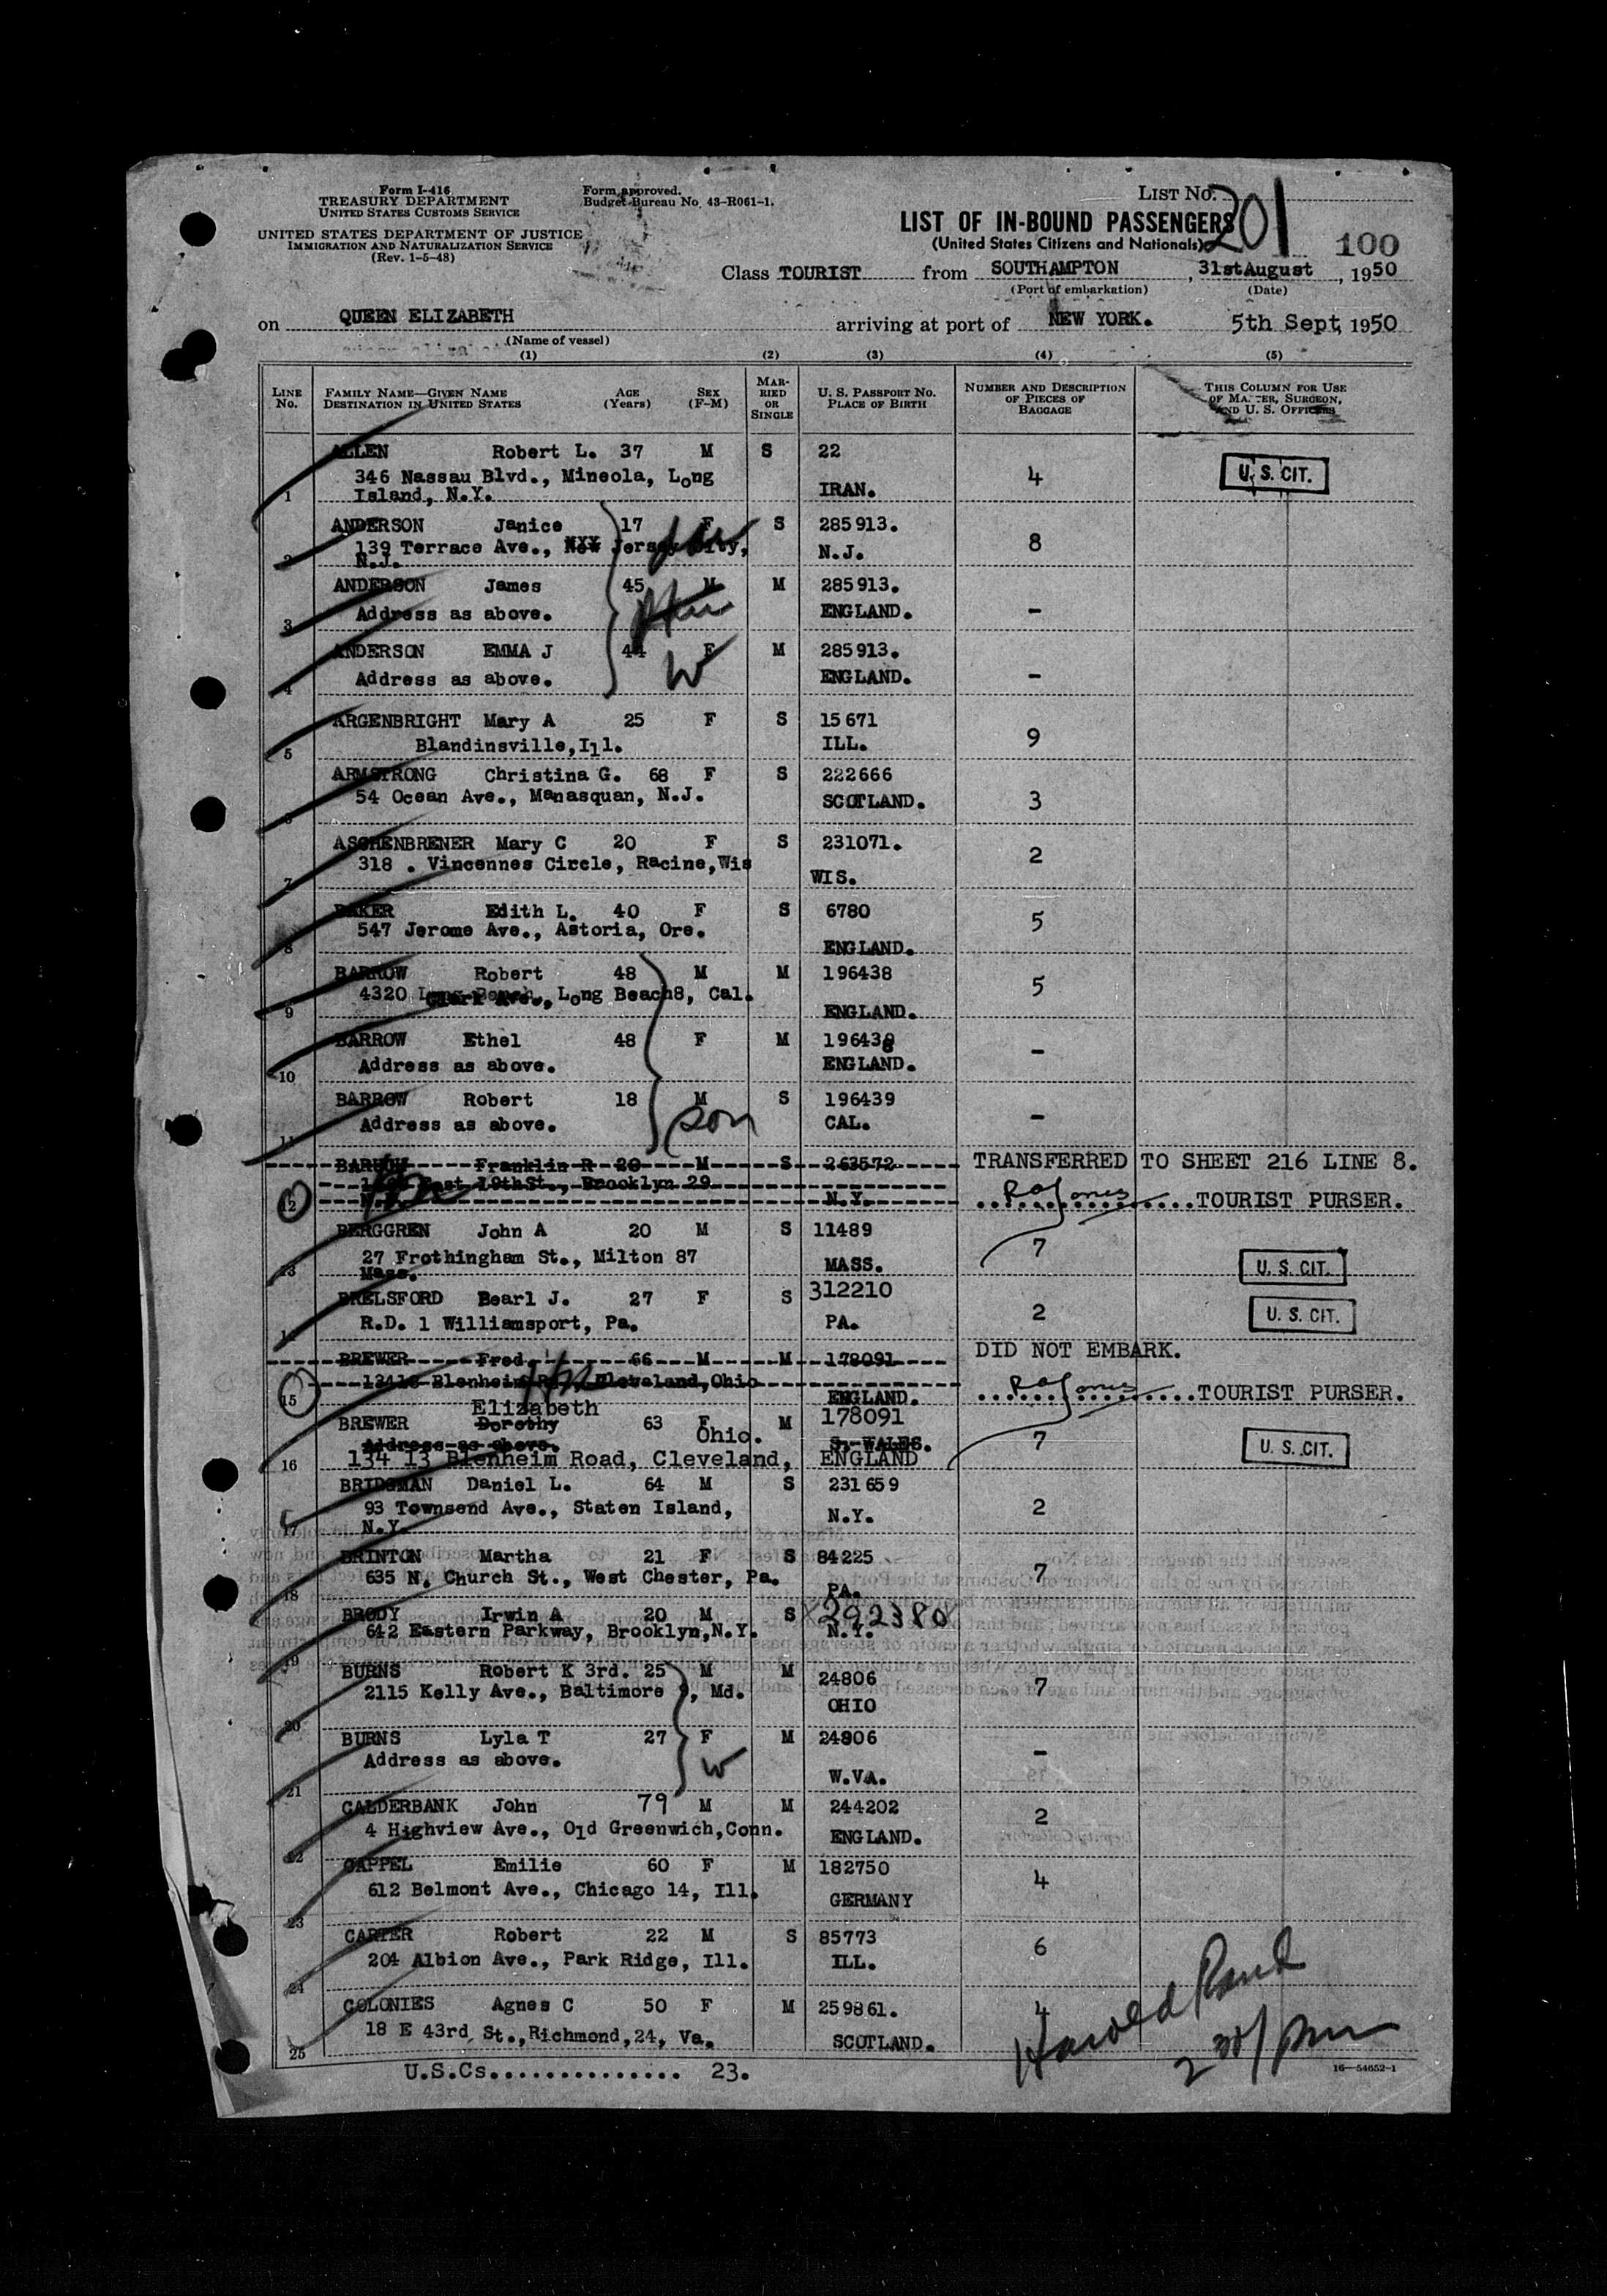 Form I-416
TREASURY DEPARTMENT
UNITED STATES CUSTOMS SERVICE
UNITED STATES DEPARTMENT OF JUSTICE
IMMIGRATION AND NATURALIZATION SERVICE
(Rev. 1-5-48)
Form approved.
Budget Bureau No. 43-R061-1.
LIST NO. 201
LIST OF IN-BOUND PASSENGERS
(United States Citizens and Nationals)
100
Class TOURIST from SOUTHAMPTON, 31stAugust, 1950
(Port of embarkation) (Date)
on QUEEN ELIZABETH arriving at port of NEW YORK. 5th Sept, 1950
(Name of vessel)
(1) (2) (3) (4) (5)
LINE NO.
FAMILY NAME—GIVEN NAME
DESTINATION IN UNITED STATES
AGE (Years)
SEX (F-M)
MARRIED OR SINGLE
U. S. PASSPORT NO.
PLACE OF BIRTH
NUMBER AND DESCRIPTION OF PIECES OF BAGGAGE
THIS COLUMN FOR USE OF MASTER, SURGEON, AND U. S. OFFICERS
ALLEN Robert L. 37 M S 22
346 Nassau Blvd., Mineola, Long 4 U. S. CIT.
1 Island, N.Y. IRAN.
ANDERSON Janice 17 F S 285913.
139 Terrace Ave., New Jersey City, N.J. 8
2 N.J.
ANDERSON James 45 M M 285913.
3 Address as above. ENGLAND. -
ANDERSON EMMA J 44 F M 285913.
4 Address as above. W ENGLAND. -
ARGENBRIGHT Mary A 25 F S 15671
5 Blandinsville,Ill. ILL. 9
ARMSTRONG Christina G. 68 F S 222666
6 54 Ocean Ave., Manasquan, N.J. SCOTLAND. 3
ASCHENBRENER Mary C 20 F S 231071. 2
7 318 . Vincennes Circle, Racine,Wis WIS.
BAKER Edith L. 40 F S 6780 5
8 547 Jerome Ave., Astoria, Ore. ENGLAND.
BARROW Robert 48 M M 196438 5
9 4320 Clark Ave., Long Beach8, Cal. ENGLAND.
BARROW Ethel 48 F M 196438 -
10 Address as above. ENGLAND.
BARROW Robert 18 M S 196439 -
11 Address as above. son CAL.
BARROW Franklin R 20 M S 263572 TRANSFERRED TO SHEET 216 LINE 8.
East 19thSt., Brooklyn 29
12 N.Y. N.Y. RaJones TOURIST PURSER.
BERGGREN John A 20 M S 11489
27 Frothingham St., Milton 87 7 U. S. CIT.
13 Mass. MASS.
BRELSFORD Bearl J. 27 F S 312210
14 R.D. 1 Williamsport, Pa. PA. 2 U. S. CIT.
BREWER Fred. 66 M M 178091 DID NOT EMBARK.
15 13413 Blenheim Rd., Cleveland,Ohio ENGLAND. RaJones TOURIST PURSER.
Elizabeth
BREWER Dorothy 63 F M 178091
Address as above. Ohio. S. WALES. 7 U. S. CIT.
16 134 13 Blenheim Road, Cleveland, ENGLAND
BRIDGMAN Daniel L. 64 M S 231659
93 Townsend Ave., Staten Island, 2
17 N.Y. N.Y.
BRINTON Martha 21 F S 84225
18 635 N. Church St., West Chester, Pa. PA. 7
BRODY Irwin A 20 M S X292380
19 642 Eastern Parkway, Brooklyn,N.Y. N.Y.
BURNS Robert K 3rd. 25 M M 24806 7
20 2115 Kelly Ave., Baltimore 9, Md. OHIO
BURNS Lyla T 27 F M 24806 -
21 Address as above. W W.VA.
CALDERBANK John 79 M M 244202 2
22 4 Highview Ave., Old Greenwich,Conn. ENGLAND.
CAPPEL Emilie 60 F M 182750 4
23 612 Belmont Ave., Chicago 14, Ill. GERMANY
CARTER Robert 22 M S 85773 6
24 204 Albion Ave., Park Ridge, Ill. ILL.
COLONIES Agnes C 50 F M 259861. 4
25 18 E 43rd St.,Richmond,24, Va. SCOTLAND.
Harold Rand
2 30/pm
U.S.Cs............... 23.
16—54652-1